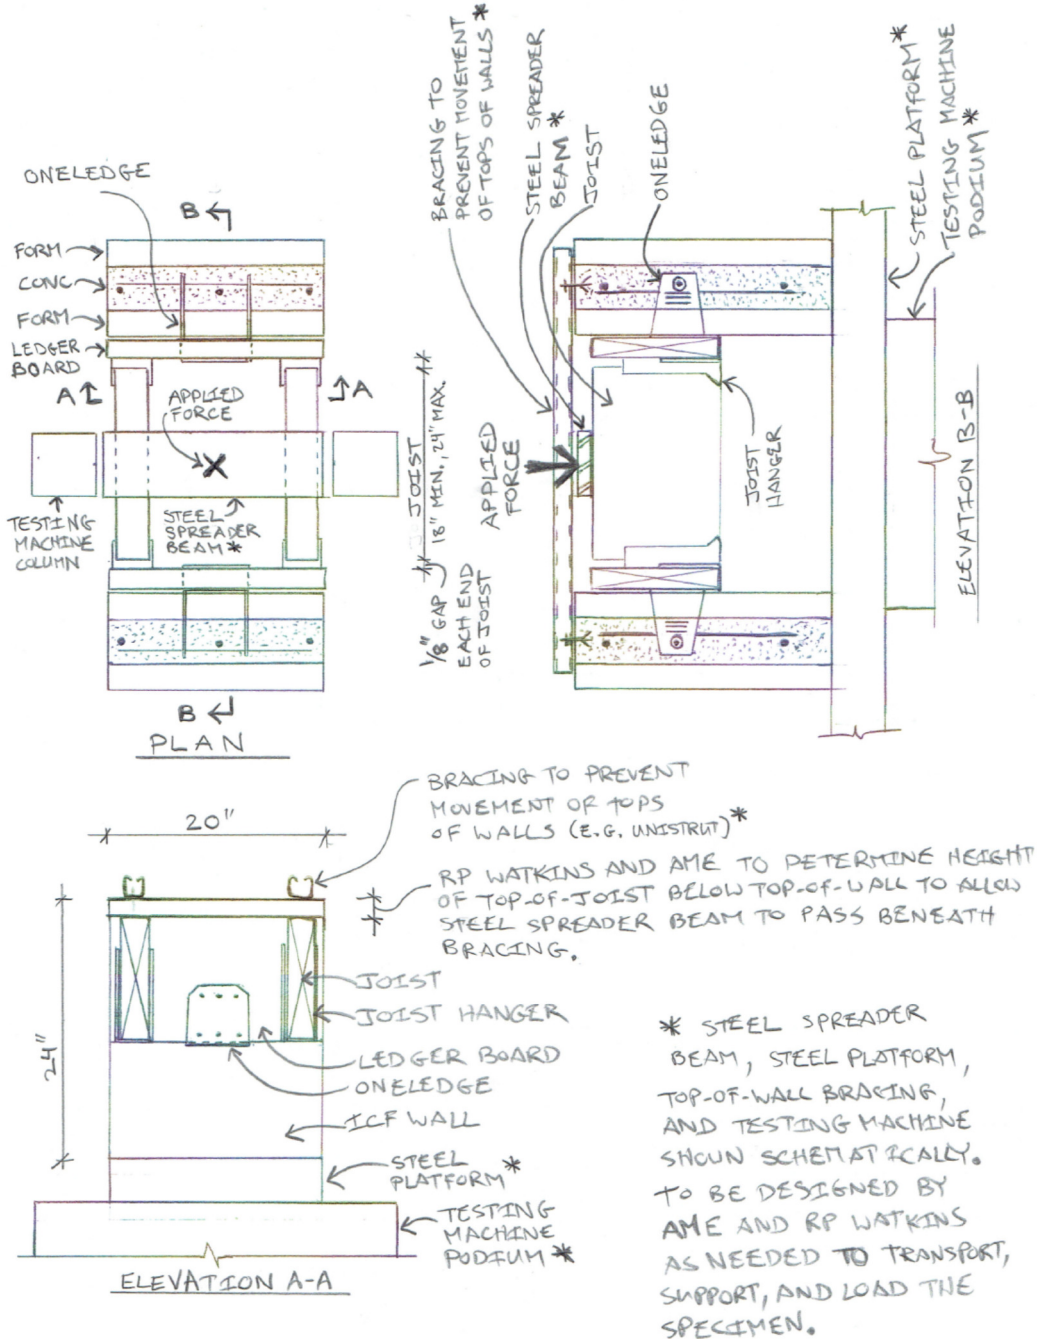 ONELEDGE
B
FORM
CONC
FORM
LEDGER
BOARD
A
A
APPLIED
FORCE
TESTING
MACHINE
COLUMN
STEEL
SPREADER
BEAM*
B
PLAN
JOIST
18" MIN., 24" MAX.
1/8" GAP
EACH END
OF JOIST
BRACING TO
PREVENT MOVEMENT
OF TOPS OF WALLS*
STEEL SPREADER
BEAM*
JOIST
ONELEDGE
STEEL PLATFORM*
TESTING MACHINE
PODIUM*
APPLIED
FORCE
JOIST
HANGER
ELEVATION B-B
20"
24"
BRACING TO PREVENT
MOVEMENT OF TOPS
OF WALLS (E.G. UNISTRUT)*
RP WATKINS AND AME TO DETERMINE HEIGHT
OF TOP-OF-JOIST BELOW TOP-OF-WALL TO ALLOW
STEEL SPREADER BEAM TO PASS BENEATH
BRACING.
JOIST
JOIST HANGER
LEDGER BOARD
ONELEDGE
ICF WALL
STEEL
PLATFORM*
TESTING
MACHINE
PODIUM*
ELEVATION A-A
* STEEL SPREADER
BEAM, STEEL PLATFORM,
TOP-OF-WALL BRACING,
AND TESTING MACHINE
SHOWN SCHEMATICALLY.
TO BE DESIGNED BY
AME AND RP WATKINS
AS NEEDED TO TRANSPORT,
SUPPORT, AND LOAD THE
SPECIMEN.